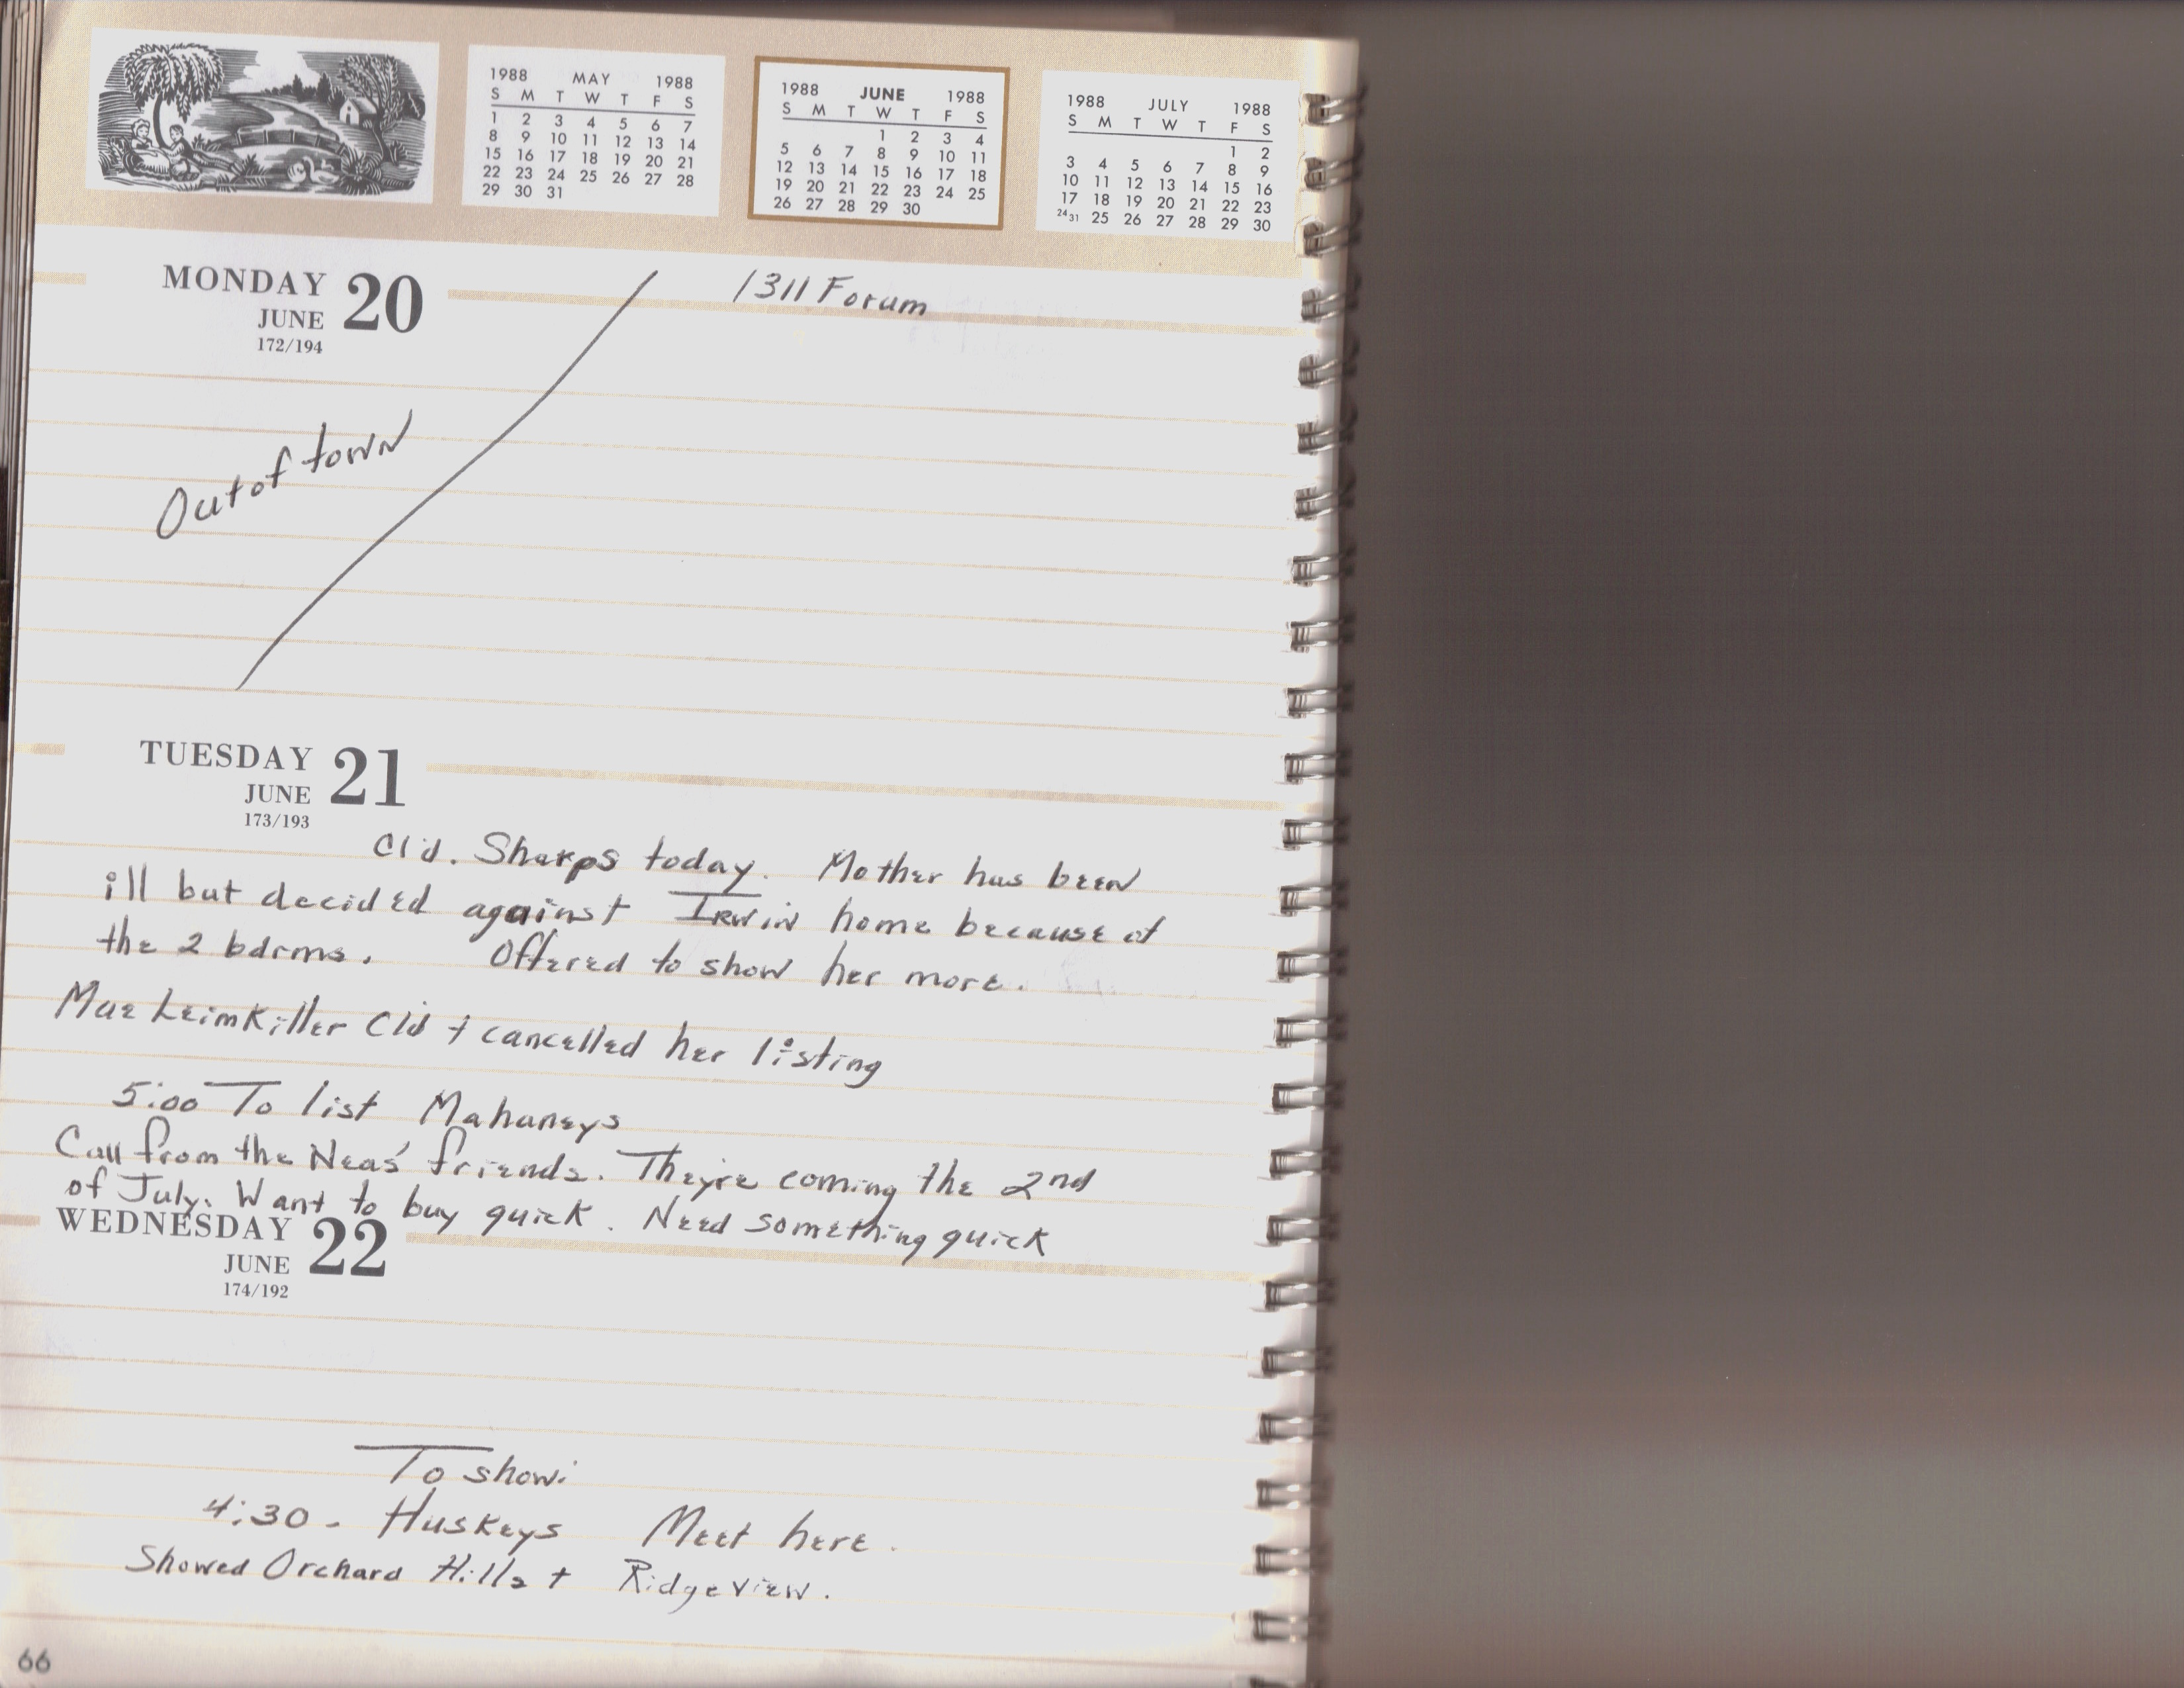 1988 MAY 1988
S M T W T F S
1 2 3 4 5 6 7
8 9 10 11 12 13 14
15 16 17 18 19 20 21
22 23 24 25 26 27 28
29 30 31
1988 JUNE 1988
S M T W T F S
1 2 3 4
5 6 7 8 9 10 11
12 13 14 15 16 17 18
19 20 21 22 23 24 25
26 27 28 29 30
1988 JULY 1988
S M T W T F S
1 2
3 4 5 6 7 8 9
10 11 12 13 14 15 16
17 18 19 20 21 22 23
24 31 25 26 27 28 29 30
MONDAY 20
JUNE
172/194
1311 Forum
Out of town
TUESDAY 21
JUNE
173/193
Cl'd. Sharps today. Mother has been
ill but decided against Irwin home because of
the 2 bdrms. Offered to show her more.
Mae Leimkiller Cld + cancelled her listing
5:00 To list Mahaneys
Call from the Neas' friends. They're coming the 2nd
of July. Want to buy quick. Need something quick
WEDNESDAY 22
JUNE
174/192
To show:
4:30 - Huskeys Meet here.
Showed Orchard Hills + Ridgeview.
66